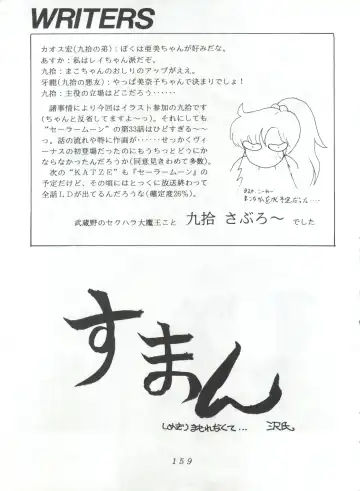 WRITERS
カオス宏(九拾の弟):ぼくは亜美ちゃんが好みだな。
あすか:私はレイちゃん派だぞ。
九拾:まこちゃんのおしりのアップがええ。
牙龍(九拾の悪友):やっぱ美奈子ちゃんで決まりでしょ!
九拾:主役の立場はどこだろう‥‥‥
諸事情により今回はイラスト参加の九拾です
(ちゃんと反省してますよ~っ)。それにしても
“セーラームーン”の第33話はひどすぎる~~
っ。話の流れや特に作画が‥‥‥せっかくヴィ
ーナスの初登場だったのにもうちっとどうにか
ならなかったんだろうか(同意見きわめて多数)。
次の“KATZE”も『セーラームーン』の
予定だけど、その頃にはとっくに放送終わって
全話LDが出てるんだろうな(確定度26%)。
武蔵野のセクハラ大魔王こと 九拾 さぶろ~ でした
すまん
しめきりまもれなくて…
沢氏
159